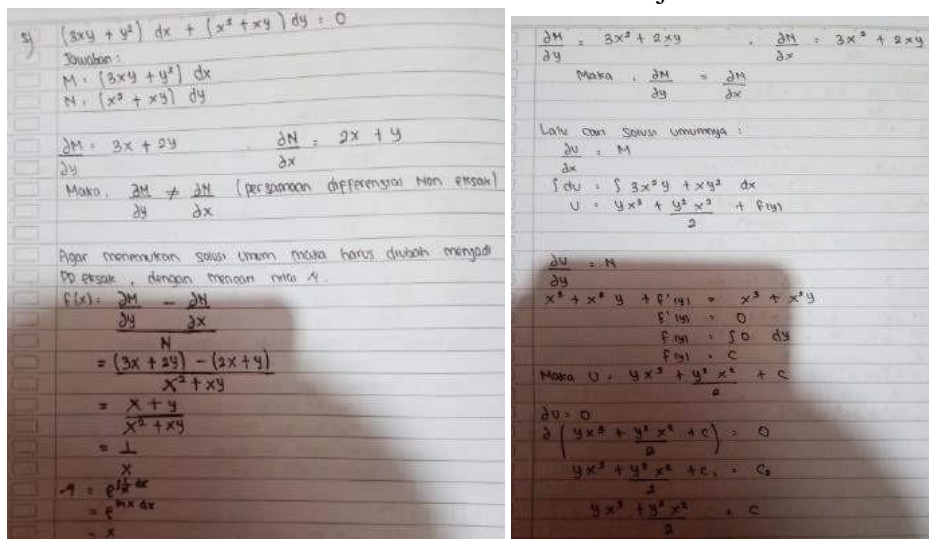 5) (3xy + y²) dx + (x² + xy) dy = 0
Jawaban :
M = (3xy + y²) dx
N = (x² + xy) dy
∂M/∂y = 3x + 2y . ∂N/∂x = 2x + y
Maka, ∂M/∂y ≠ ∂N/∂x (persamaan differensial Non eksak)
Agar menemukan solusi umum maka harus diubah menjadi
PD eksak, dengan mencari nilai
f(x) = (∂M/∂y - ∂N/∂x)/N
= ((3x + 2y) - (2x + y))/(x² + xy)
= (x + y)/(x² + xy)
= 1/x
= e^(∫ 1/x dx)
= e^(ln x dx)
= x
∂M/∂y = 3x² + 2xy . ∂N/∂x = 3x² + 2xy
Maka, ∂M/∂y = ∂N/∂x
Lalu cari solusi umumnya :
∂u/∂x = M
∫ du = ∫ 3x²y + xy² dx
U = yx³ + y²x²/2 + f(y)
∂u/∂y = N
x³ + x²y + f'(y) = x³ + x²y
f'(y) = 0
f(y) = ∫0 dy
f(y) = C
Maka U = yx³ + y²x²/2 + C
∂U = 0
∂(yx³ + y²x²/2 + C) = 0
yx³ + y²x²/2 + C₁ = C₂
yx³ + y²x²/2 = C